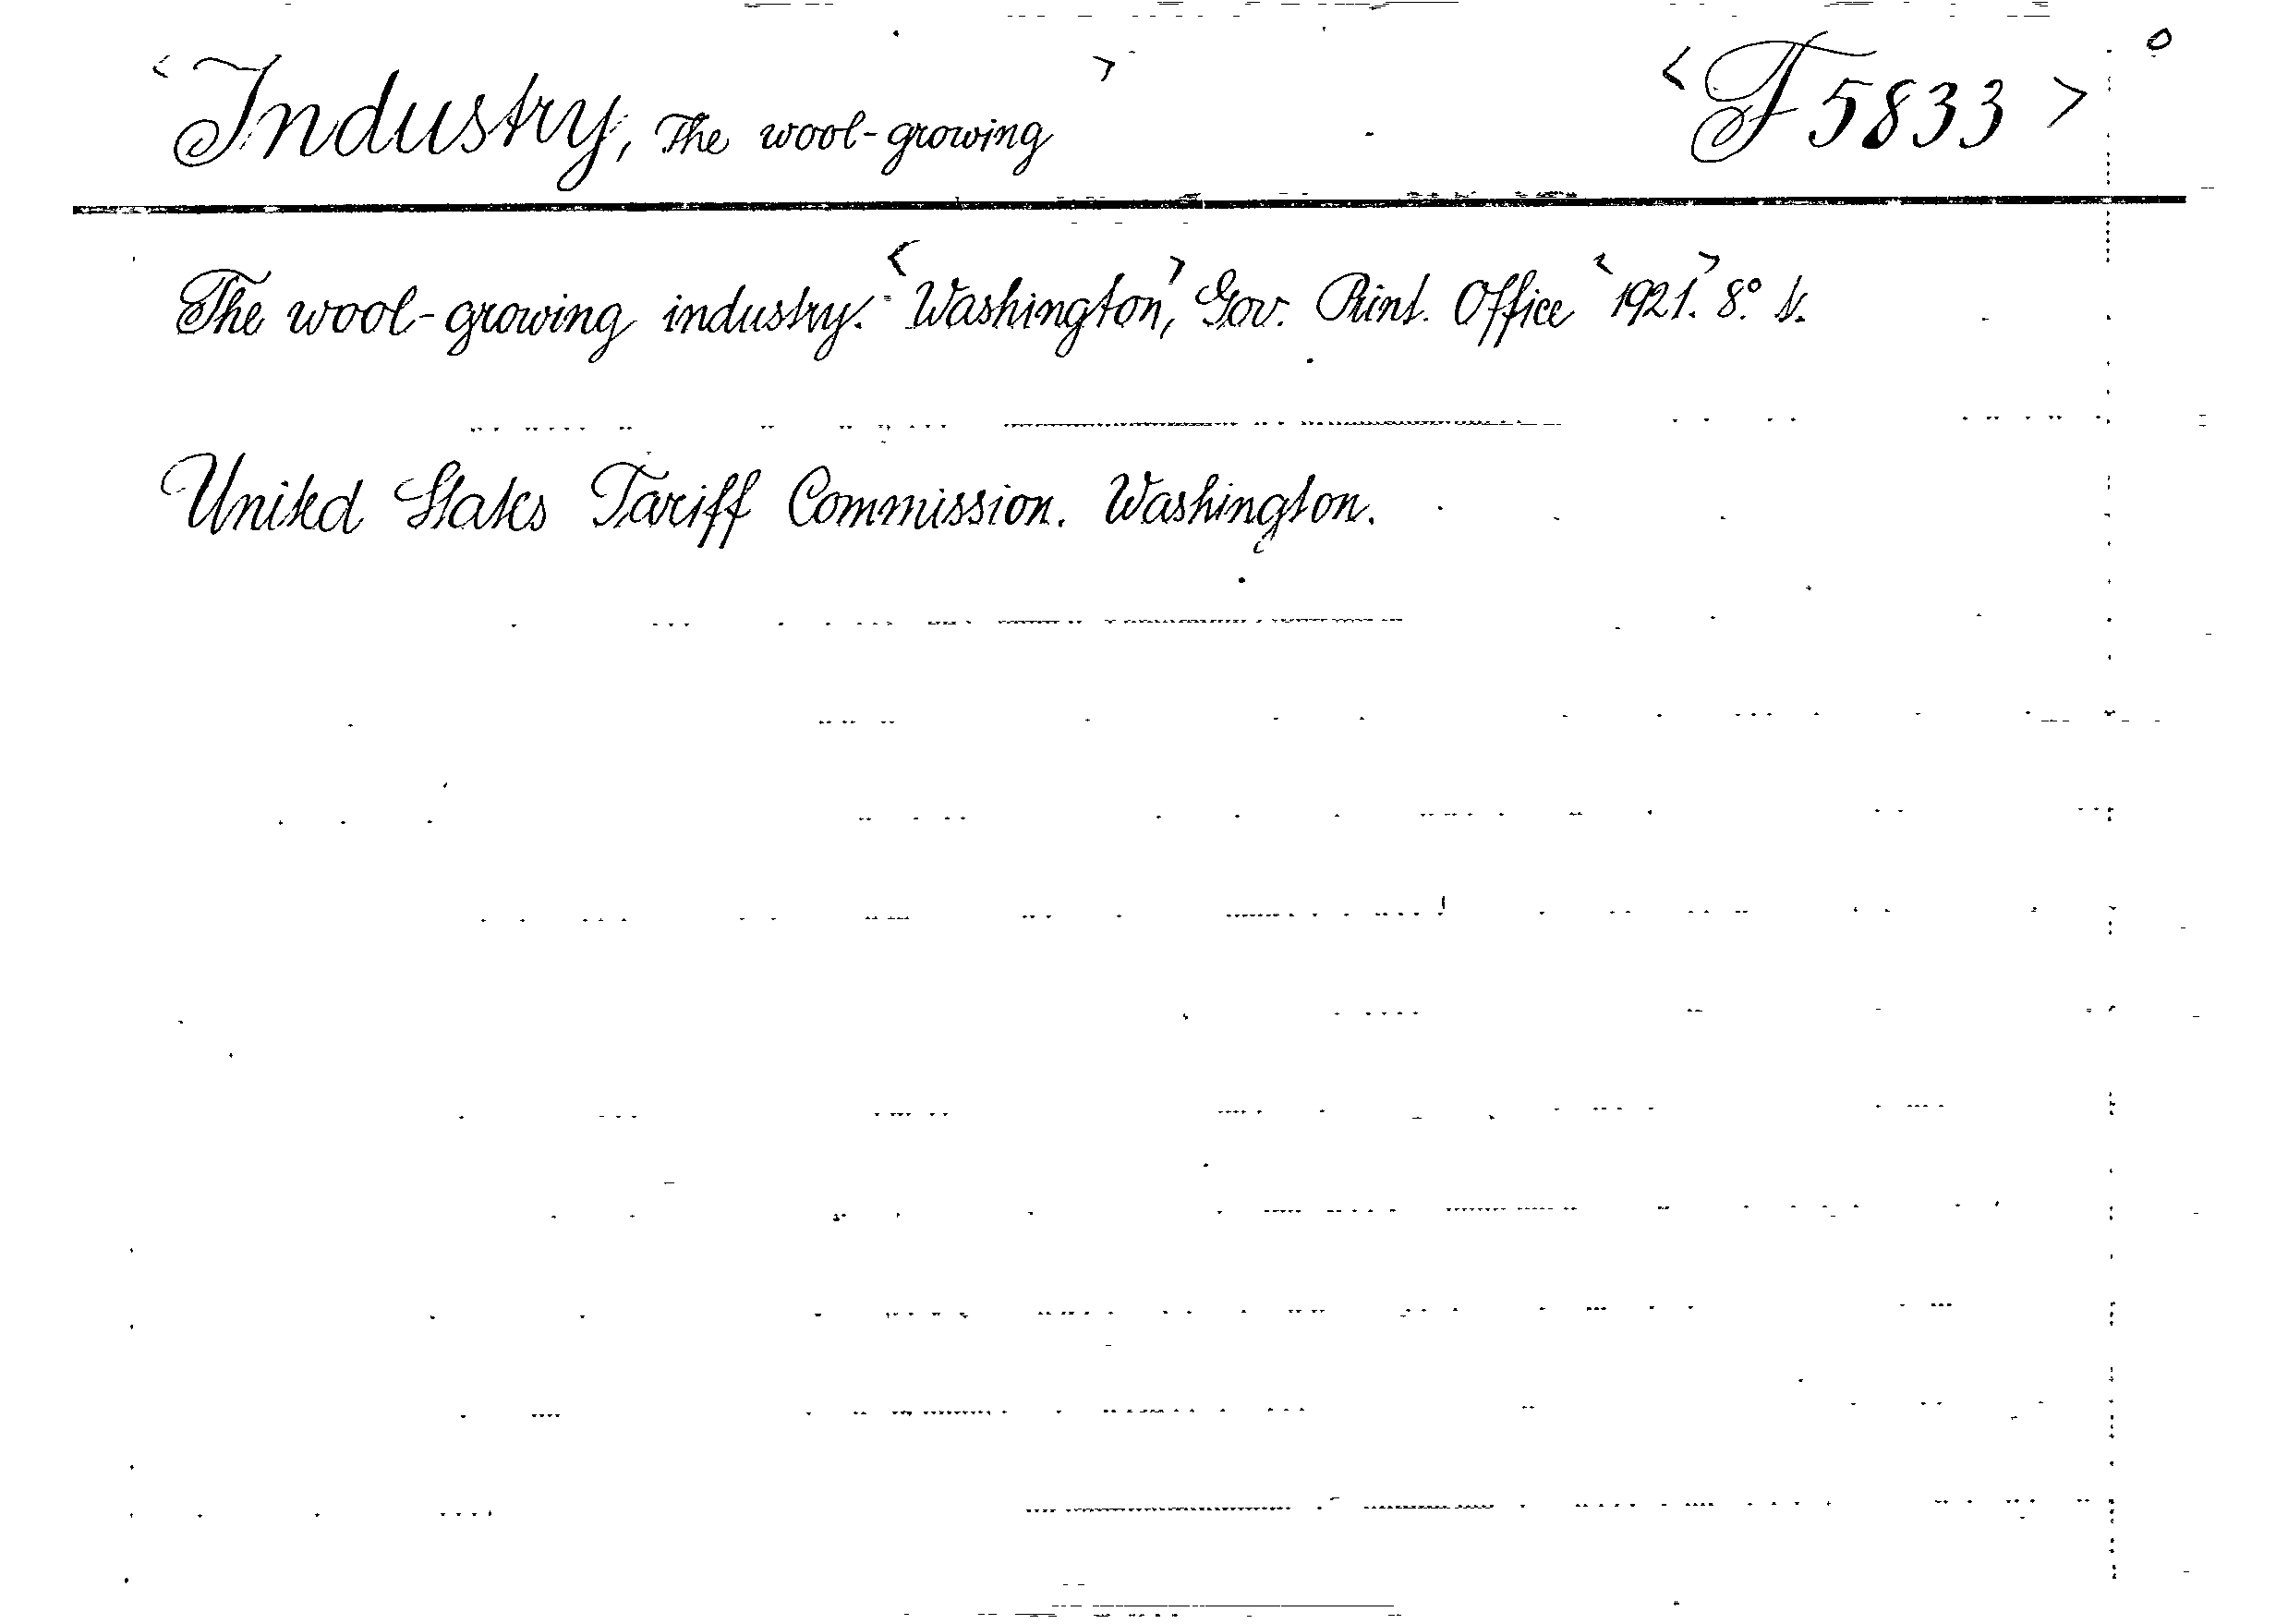 <Industry, The wool-growing> <F 5833> o
The wool-growing industry. <Washington>, Gov. Print. Office <1921.> 8.°
United States Tariff Commission. Washington.